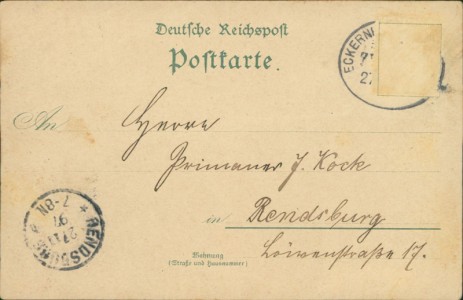 Deutsche Reichspost
Postkarte.
ECKERN
27
An Herrn
Primaner J. Kock
in Rendsburg
Löwenstraße 17.
Wohnung
(Straße und Hausnummer)
RENDSBURG
97
7-8N